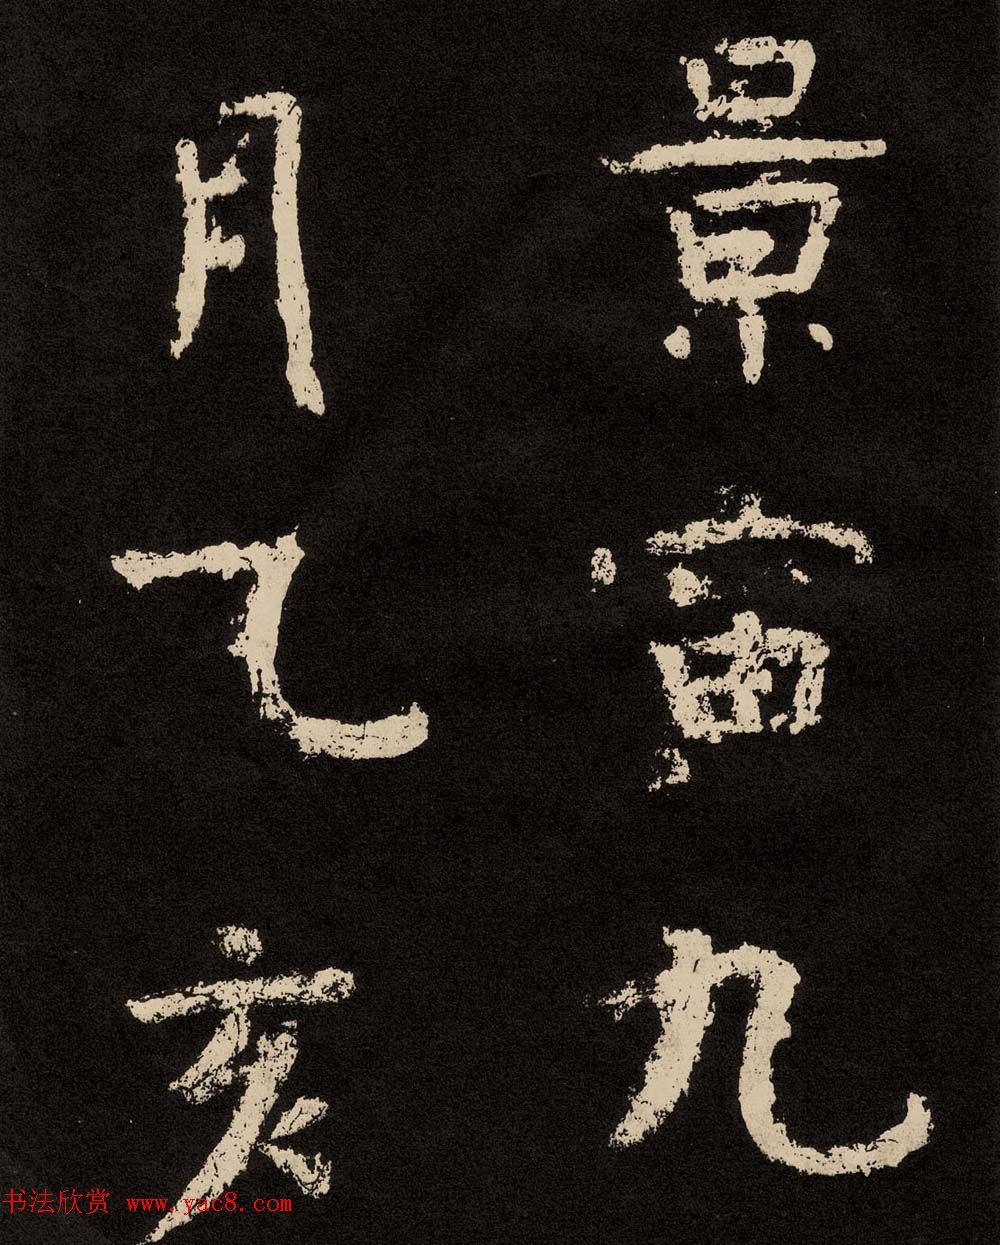 景寅九
月乙亥
书法欣赏 www.yac8.com